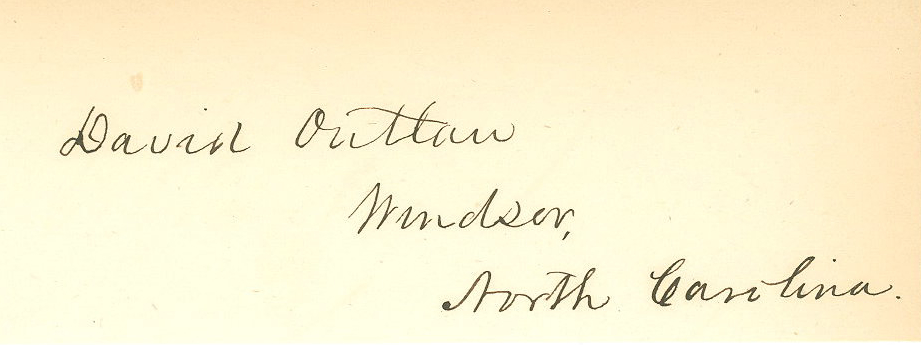 David Outlaw
Windsor,
North Carolina.